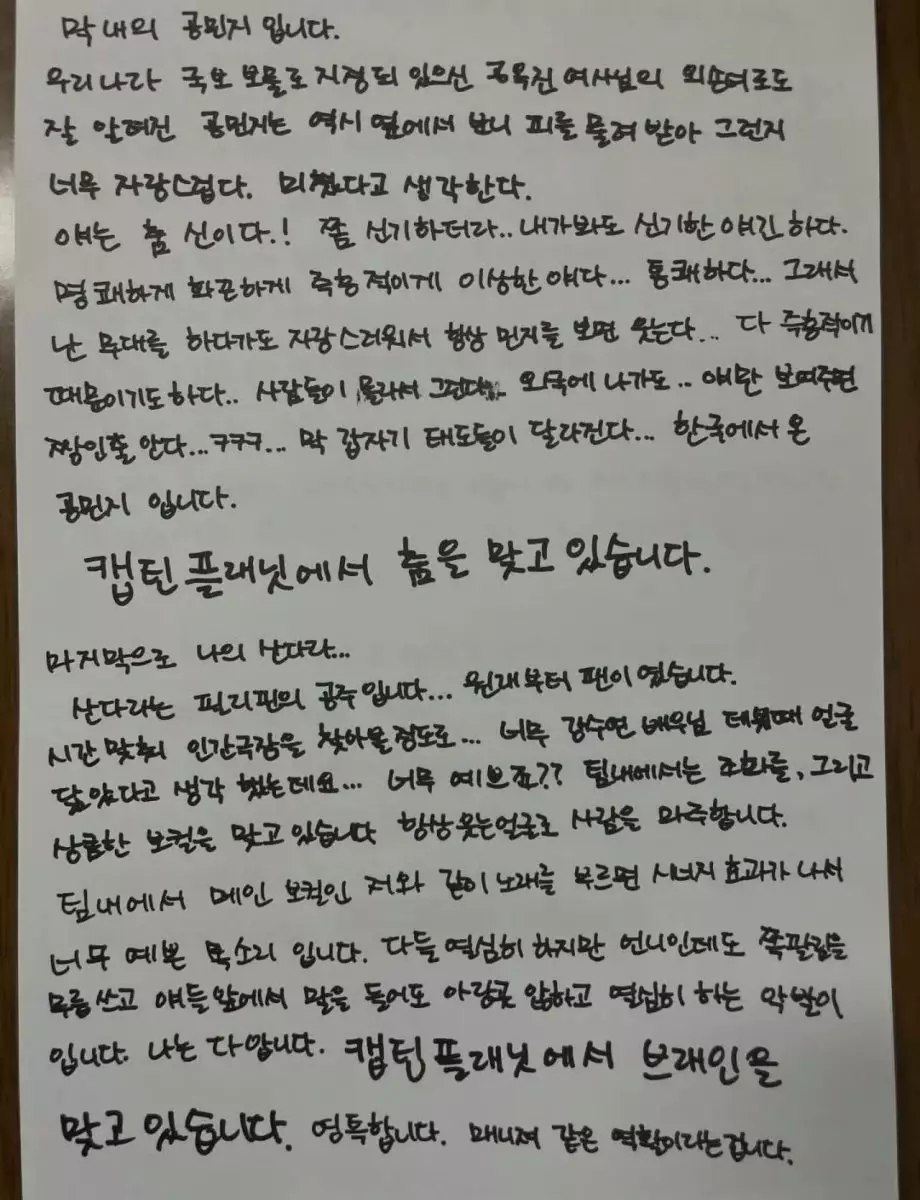 막내의 공민지 입니다.
우리나라 국보 보물로 지정되 있으신 공옥진 여사님의 외손녀로도
잘 알려진 공민지는 역시 옆에서 보니 피를 물려 받아 그런지
너무 자랑스럽다. 미쳤다고 생각한다.
얘는 춤 신이다.! 쫌 신기하더라.. 내가봐도 신기한 얘긴 하다.
명쾌하게 화끈하게 즉흥적이게 이상한 얘다... 통쾌하다... 그래서
난 무대를 하다가도 자랑스러워서 항상 민지를 보면 웃는다... 다 즉흥적이기
때문이기도하다.. 사람들이 몰라서 그런다.. 외국에 나가도.. 얘만 보여주면
짱인줄 안다...ㅋㅋㅋ... 막 갑자기 태도들이 달라진다... 한국에서 온
공민지 입니다.
캡틴플래닛에서 춤을 맞고 있습니다.
마지막으로 나의 산다라...
산다라는 필리핀의 공주입니다... 원래부터 팬이였습니다.
시간 맞춰 인간극장을 찾아볼정도로... 너무 강수연 배우님 데뷔때 얼굴
닮았다고 생각 했는데요... 너무 예쁘죠?? 팀내에서는 조화를, 그리고
상큼한 보컬을 맞고 있습니다 항상웃는얼굴로 사람을 마주합니다.
팀내에서 메인 보컬인 저와 같이 노래를 부르면 시너지 효과가 나서
너무 예쁜 목소리 입니다. 다들 열심히 하지만 언니인데도 쪽팔림을
무릎쓰고 얘들앞에서 말을 들어도 아랑곳 압하고 열심히 하는 악발이
입니다. 나는 다압니다. 캡틴플래닛에서 브레인을
맞고 있습니다. 영특합니다. 매니져 같은 역활이라는겁니다.